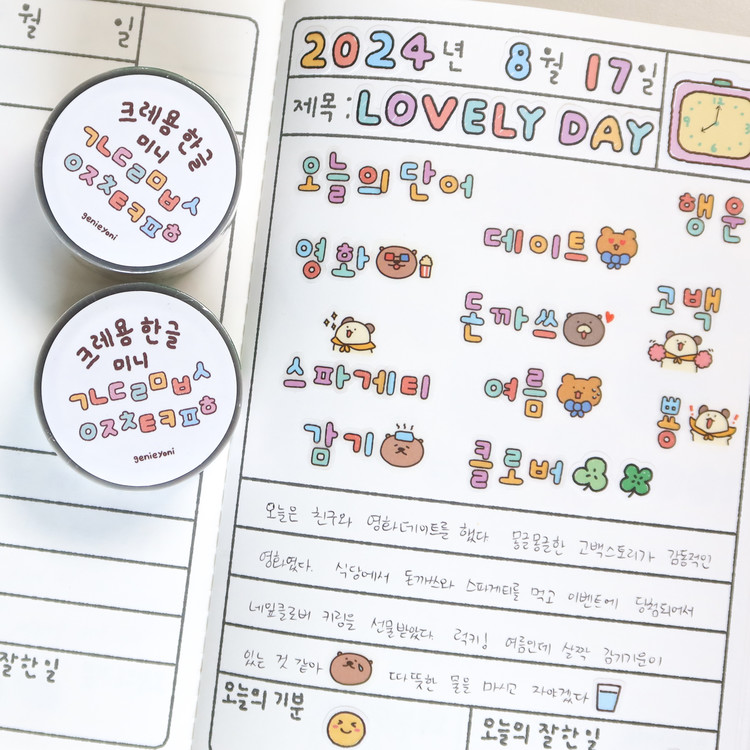 월 일
크레용 한글
미니
ㄱㄴㄷㄹㅁㅂㅅ
ㅇㅈㅊㅌㅋㅍㅎ
genieyoni
크레용 한글
미니
ㄱㄴㄷㄹㅁㅂㅅ
ㅇㅈㅊㅌㅋㅍㅎ
genieyoni
잘한일
2024년 8월 17일
제목: LOVELY DAY
12
오늘의 단어
행운
데이트
영화
고백
돈까쓰
스파게티
여름
뿅
감기
클로버
오늘은 친구와 영화데이트를 했다 몽글몽글한 고백스토리가 감동적인
영화였다. 식당에서 돈까쓰와 스파게티를 먹고 이벤트에 당첨되어서
네잎클로버 키링을 선물받았다. 럭키! 여름인데 살짝 감기기운이
있는 것 같아 따뜻한 물을 마시고 자야겠다
오늘의 기분
오늘의 잘한일